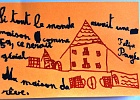 Si tout le monde avait une
maison comme
ça, ce serait
génial
Ma maison de
rêve.